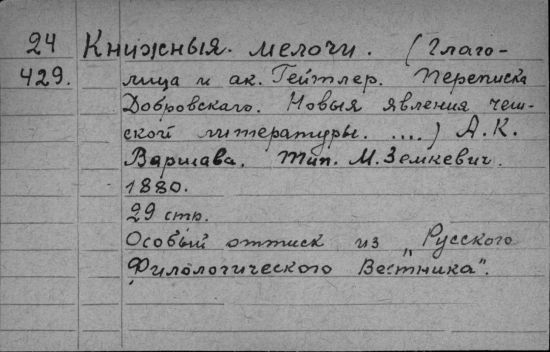 24 Книжныя мелочи. (Глаго-
429. лица и ак. Гейтлер. Переписка
Добровскаго. Новыя явления чеш-
ской литературы. ....) А.К.
Варшава. Тип. М. Земкевич.
1880.
29 стр.
Особый оттиск из „Русского
Филологического Вестника".